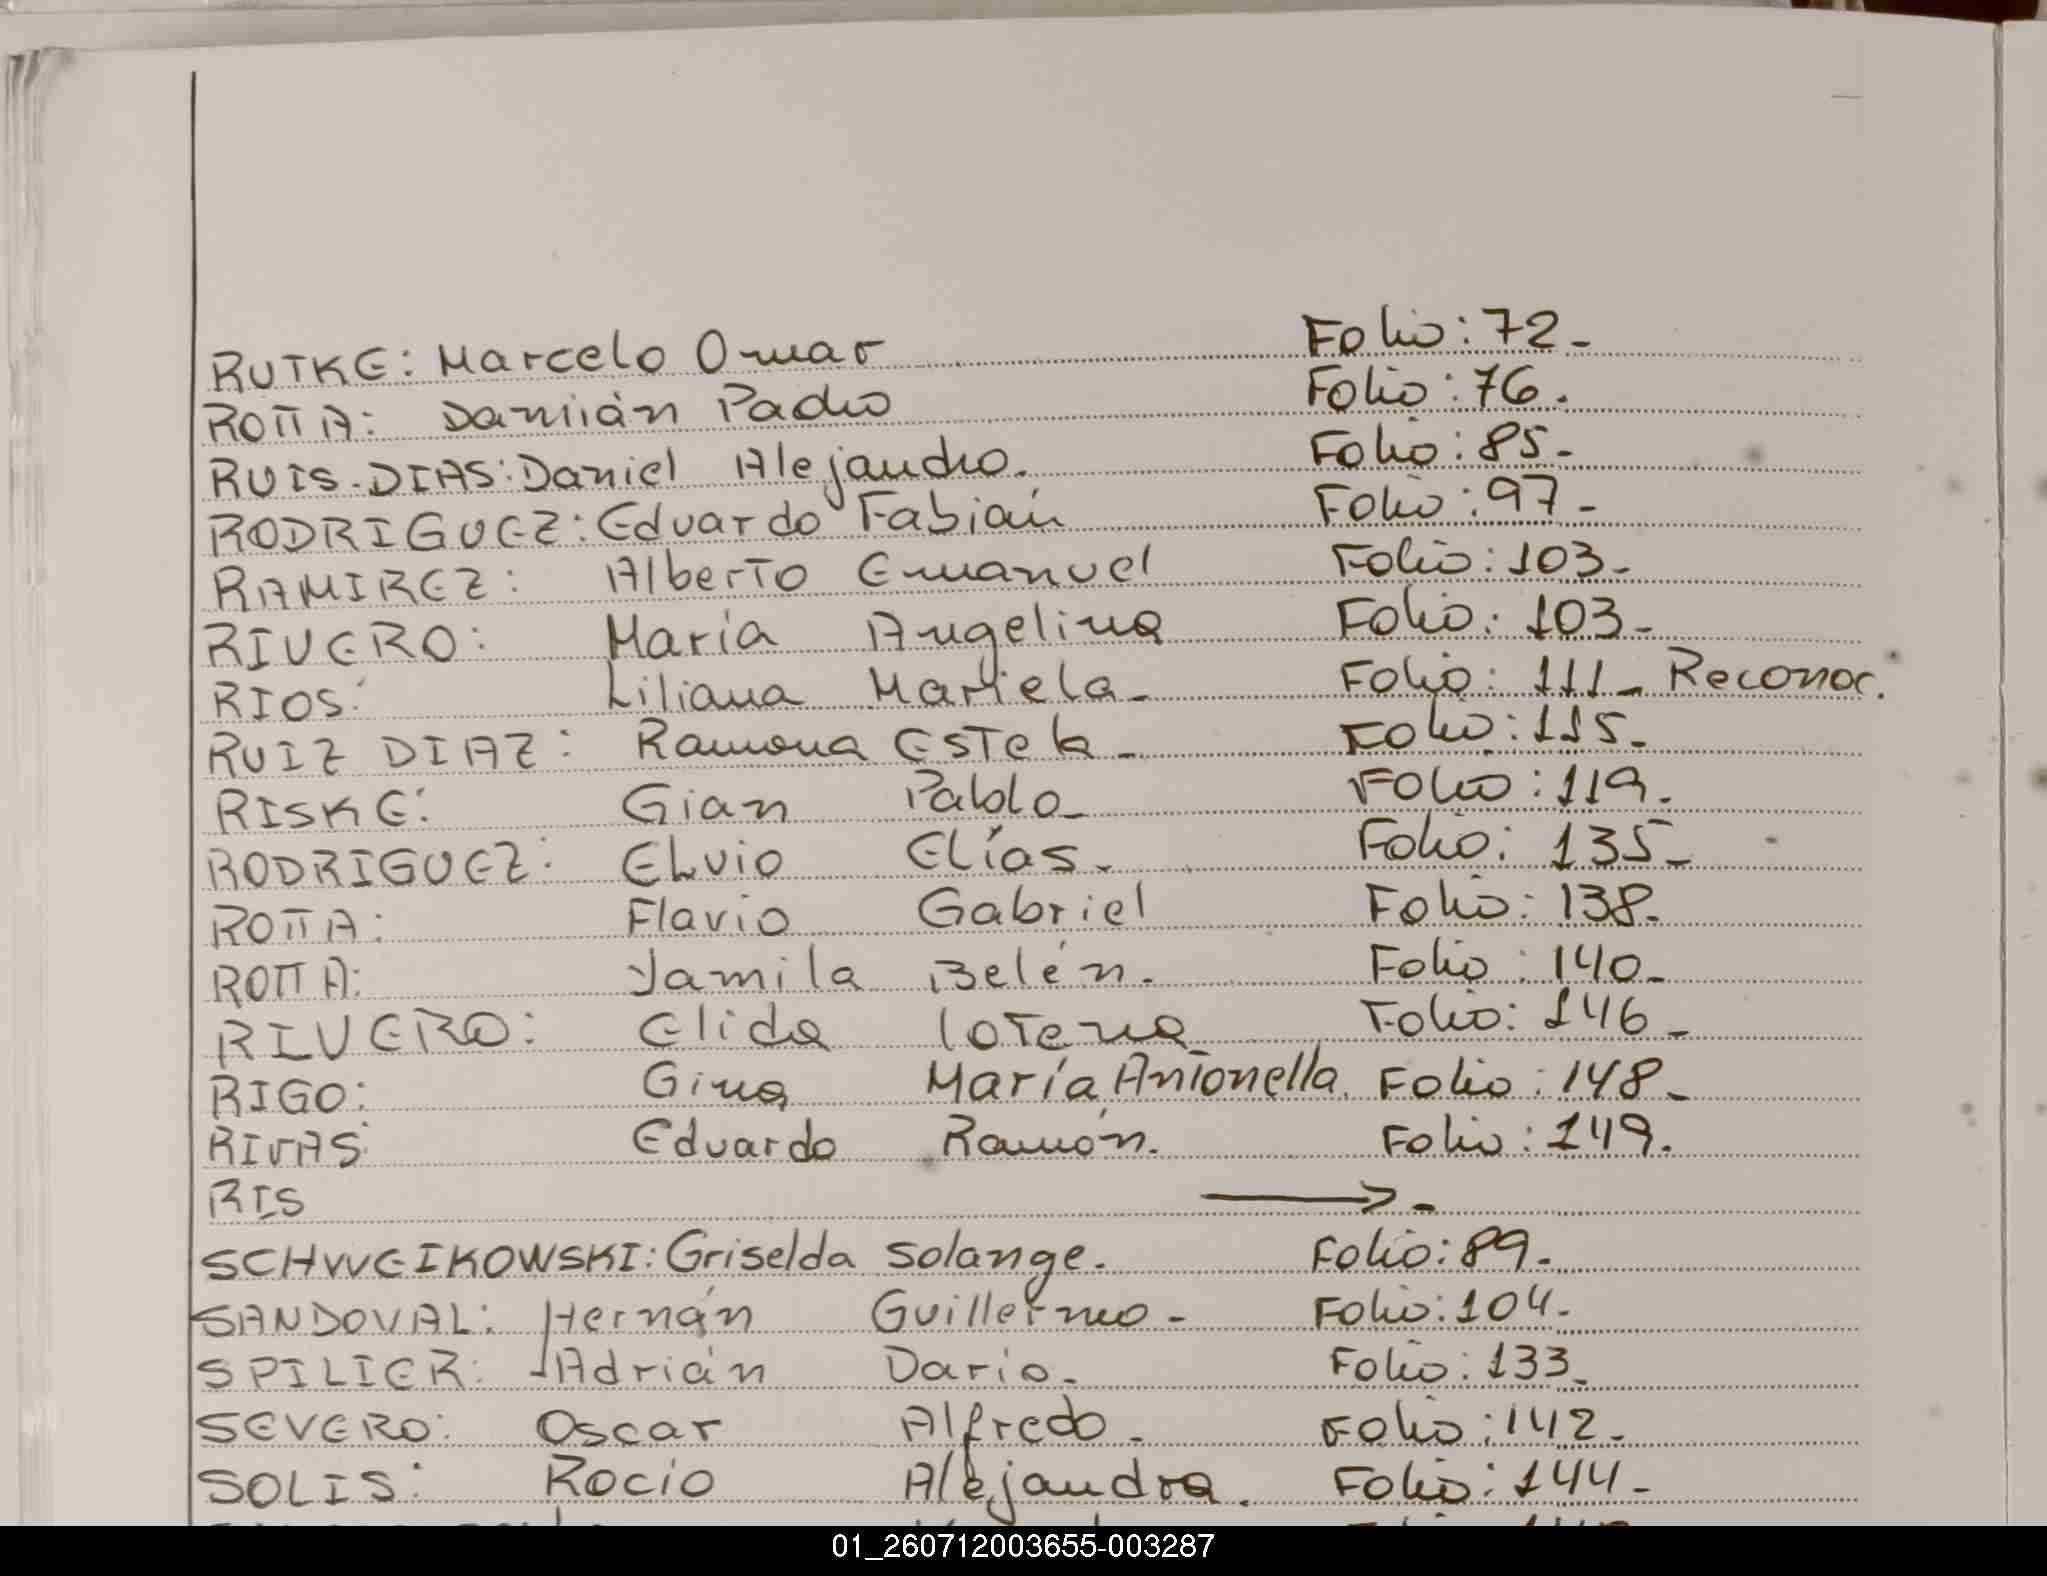 RUTKE: Marcelo Omar Folio: 72-
ROTTA: Damián Pablo Folio: 76.
RUIS-DIAS: Daniel Alejandro. Folio: 85-
RODRIGUEZ: Eduardo Fabián Folio: 97-
RAMIREZ: Alberto Emanuel Folio: 103-
RIVERO: María Angelina Folio: 103-
RIOS: Liliana Mariela- Folio: 111- Reconoc.
RUIZ DIAZ: Ramona Estela- Folio: 115-
RISKE: Gian Pablo- Folio: 119.
RODRIGUEZ: Elvio Elías- Folio: 135-
ROTTA: Flavio Gabriel Folio: 138-
ROTTA: Yamila Belén. Folio: 140-
RIVERO: Elida Folio: 146-
RIGO: Gina María Antonella. Folio: 148-
RIVAS: Eduardo Ramón. Folio: 149.
RIS →-
SCHWEIKOWSKI: Griselda Solange. Folio: 89-
SANDOVAL: Hernán Guillermo- Folio: 104-
SPILIER: Adrián Dario- Folio: 133-
SEVERO: Oscar Alfredo- Folio: 142-
SOLIS: Rocío Alejandra. Folio: 144-
01_260712003655-003287